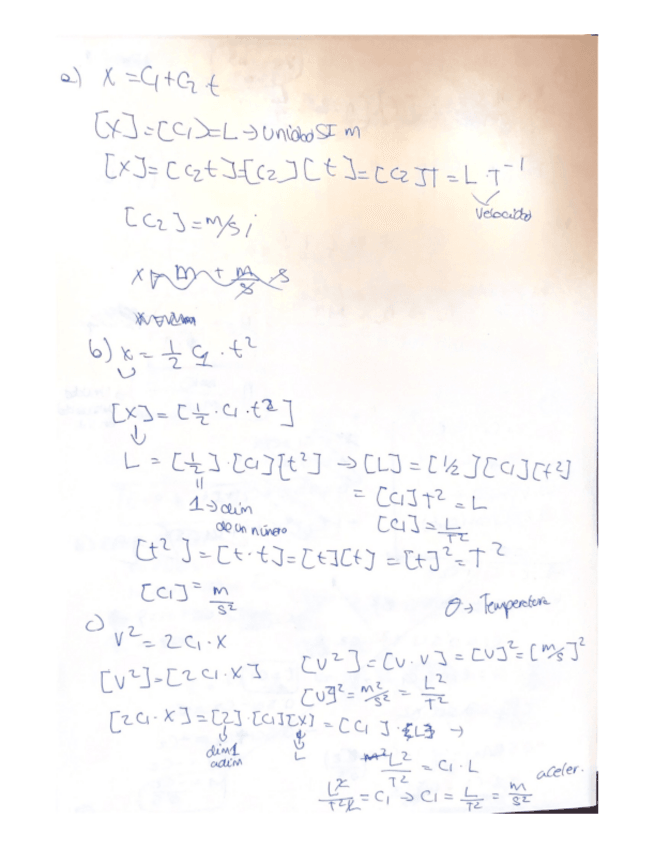 a) x = C₁ + C₂ t
[x] = [C₁] = L → Unidad SI m
[x] = [C₂t] = [C₂][t] = [C₂]T = L · T⁻¹
Velocidad
[C₂] = m/s ;
x = m + m/s · s
b) x = 1/2 C₁ · t²
[x] = [1/2 · C₁ · t²]
L = [1/2] · [C₁][t²] → [L] = [1/2][C₁][t²]
= [C₁]T² = L
1 → dim de un número
[C₁] = L/T²
[t²] = [t · t] = [t][t] = [t]² = T²
[C₁] = m/s²
θ → Temperatura
c) v² = 2C₁ · x
[v²] = [2C₁ · x]
[v²] = [v · v] = [v]² = [m/s]²
[v]² = m²/s² = L²/T²
[2C₁ · x] = [2] · [C₁][x] = [C₁] · [L] →
dim 1 adim
L
L²/T² = C₁ · L
L²/T²L = C₁ → C₁ = L/T² = m/s² aceler.